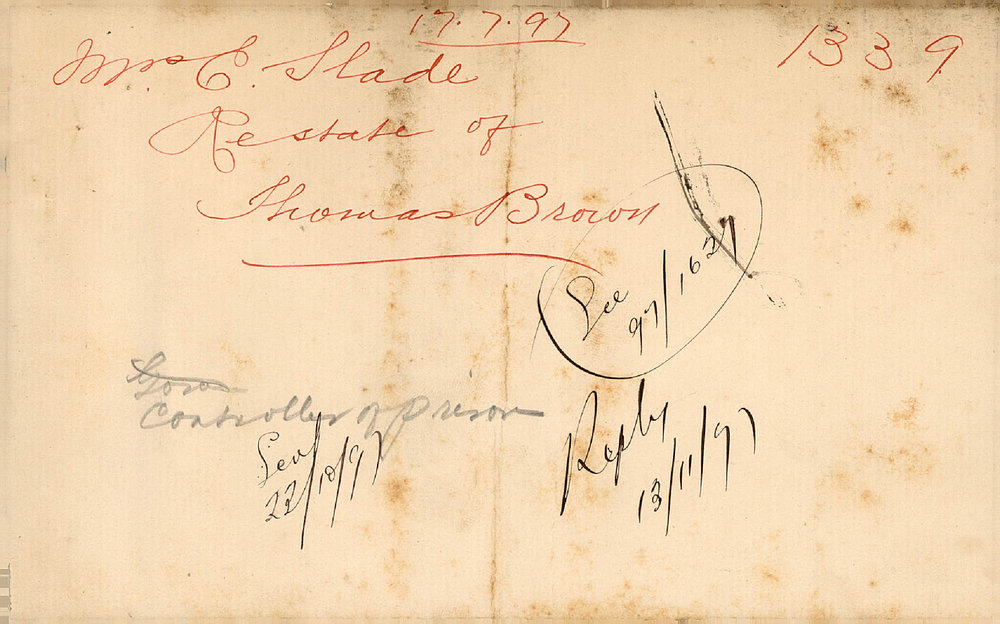 17.7.97
Mrs E. Slade
1339
Re state of
Thomas Brown
See
97/1627
Gov
Controller of Prison
22/10/97
Reply
13/11/97